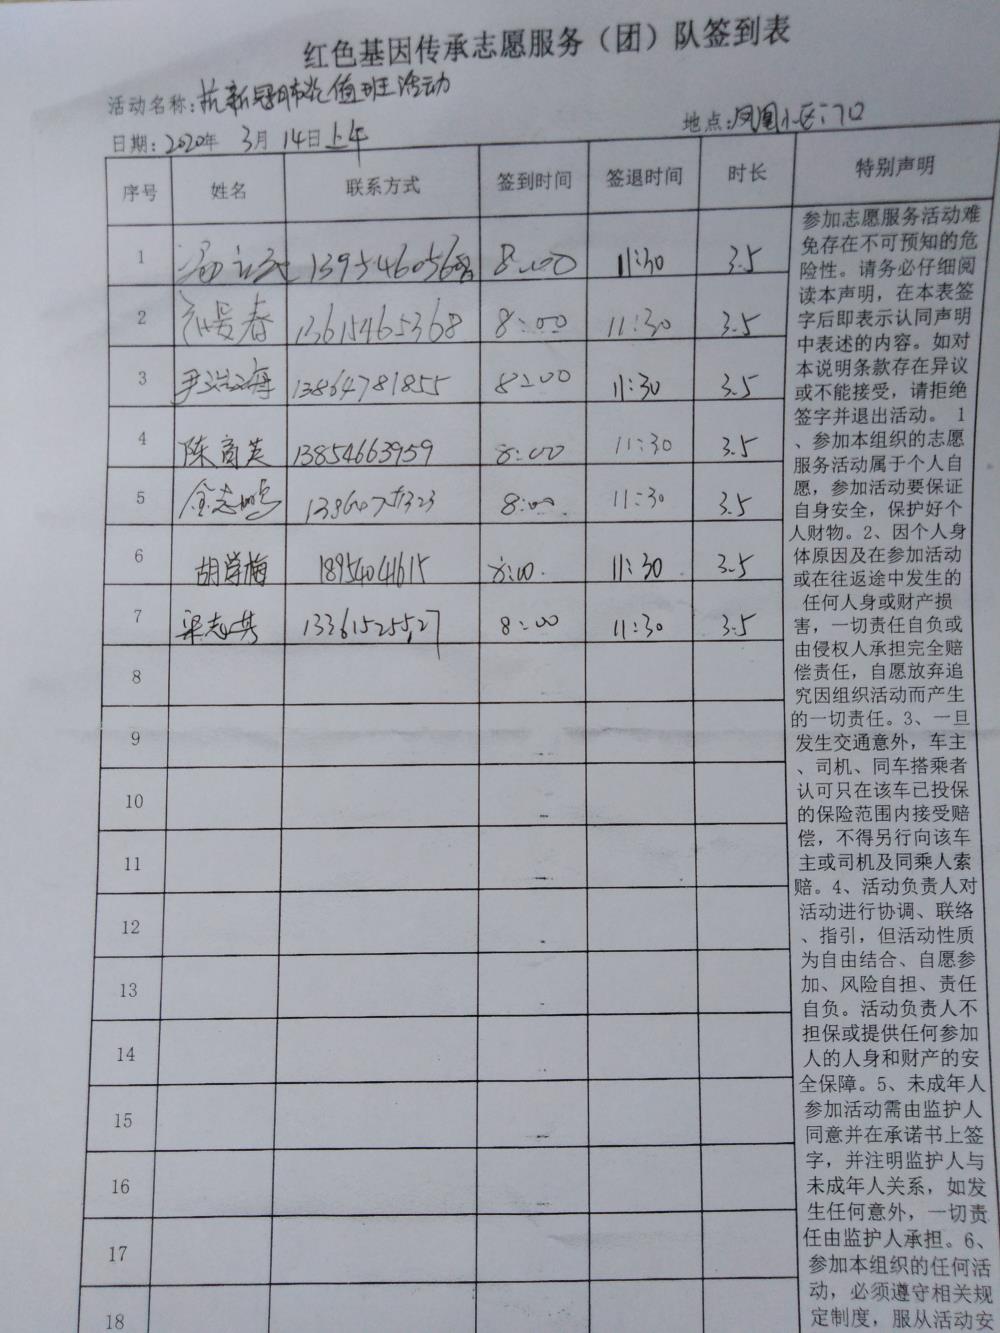 红色基因传承志愿服务（团）队签到表
活动名称：抗新冠肺炎值班活动
日期：2020年 3月 14日上午 地点：凤凰小区门口
序号 姓名 联系方式 签到时间 签退时间 时长 特别声明
1 8:00 11:30 3.5
2 春 13615465368 8:00 11:30 3.5
3 尹 13864781855 8:00 11:30 3.5
4 陈育英 13854663959 8:00 11:30 3.5
5 金志鹏 8:00 11:30 3.5
6 胡学梅 18954041615 8:00 11:30 3.5
7 梁志英 13361525527 8:00 11:30 3.5
8
9
10
11
12
13
14
15
16
17
18
参加志愿服务活动难
免存在不可预知的危
险性。请务必仔细阅
读本声明，在本表签
字后即表示认同声明
中表述的内容。如对
本说明条款存在异议
或不能接受，请拒绝
签字并退出活动。 1
、参加本组织的志愿
服务活动属于个人自
愿，参加活动要保证
自身安全，保护好个
人财物。2、因个人身
体原因及在参加活动
或在往返途中发生的
任何人身或财产损
害，一切责任自负或
由侵权人承担完全赔
偿责任，自愿放弃追
究因组织活动而产生
的一切责任。3、一旦
发生交通意外，车主
、司机、同车搭乘者
认可只在该车已投保
的保险范围内接受赔
偿，不得另行向该车
主或司机及同乘人索
赔。4、活动负责人对
活动进行协调、联络
、指引，但活动性质
为自由结合、自愿参
加、风险自担、责任
自负。活动负责人不
担保或提供任何参加
人的人身和财产的安
全保障。5、未成年人
参加活动需由监护人
同意并在承诺书上签
字，并注明监护人与
未成年人关系，如发
生任何意外，一切责
任由监护人承担。6、
参加本组织的任何活
动，必须遵守相关规
定制度，服从活动安